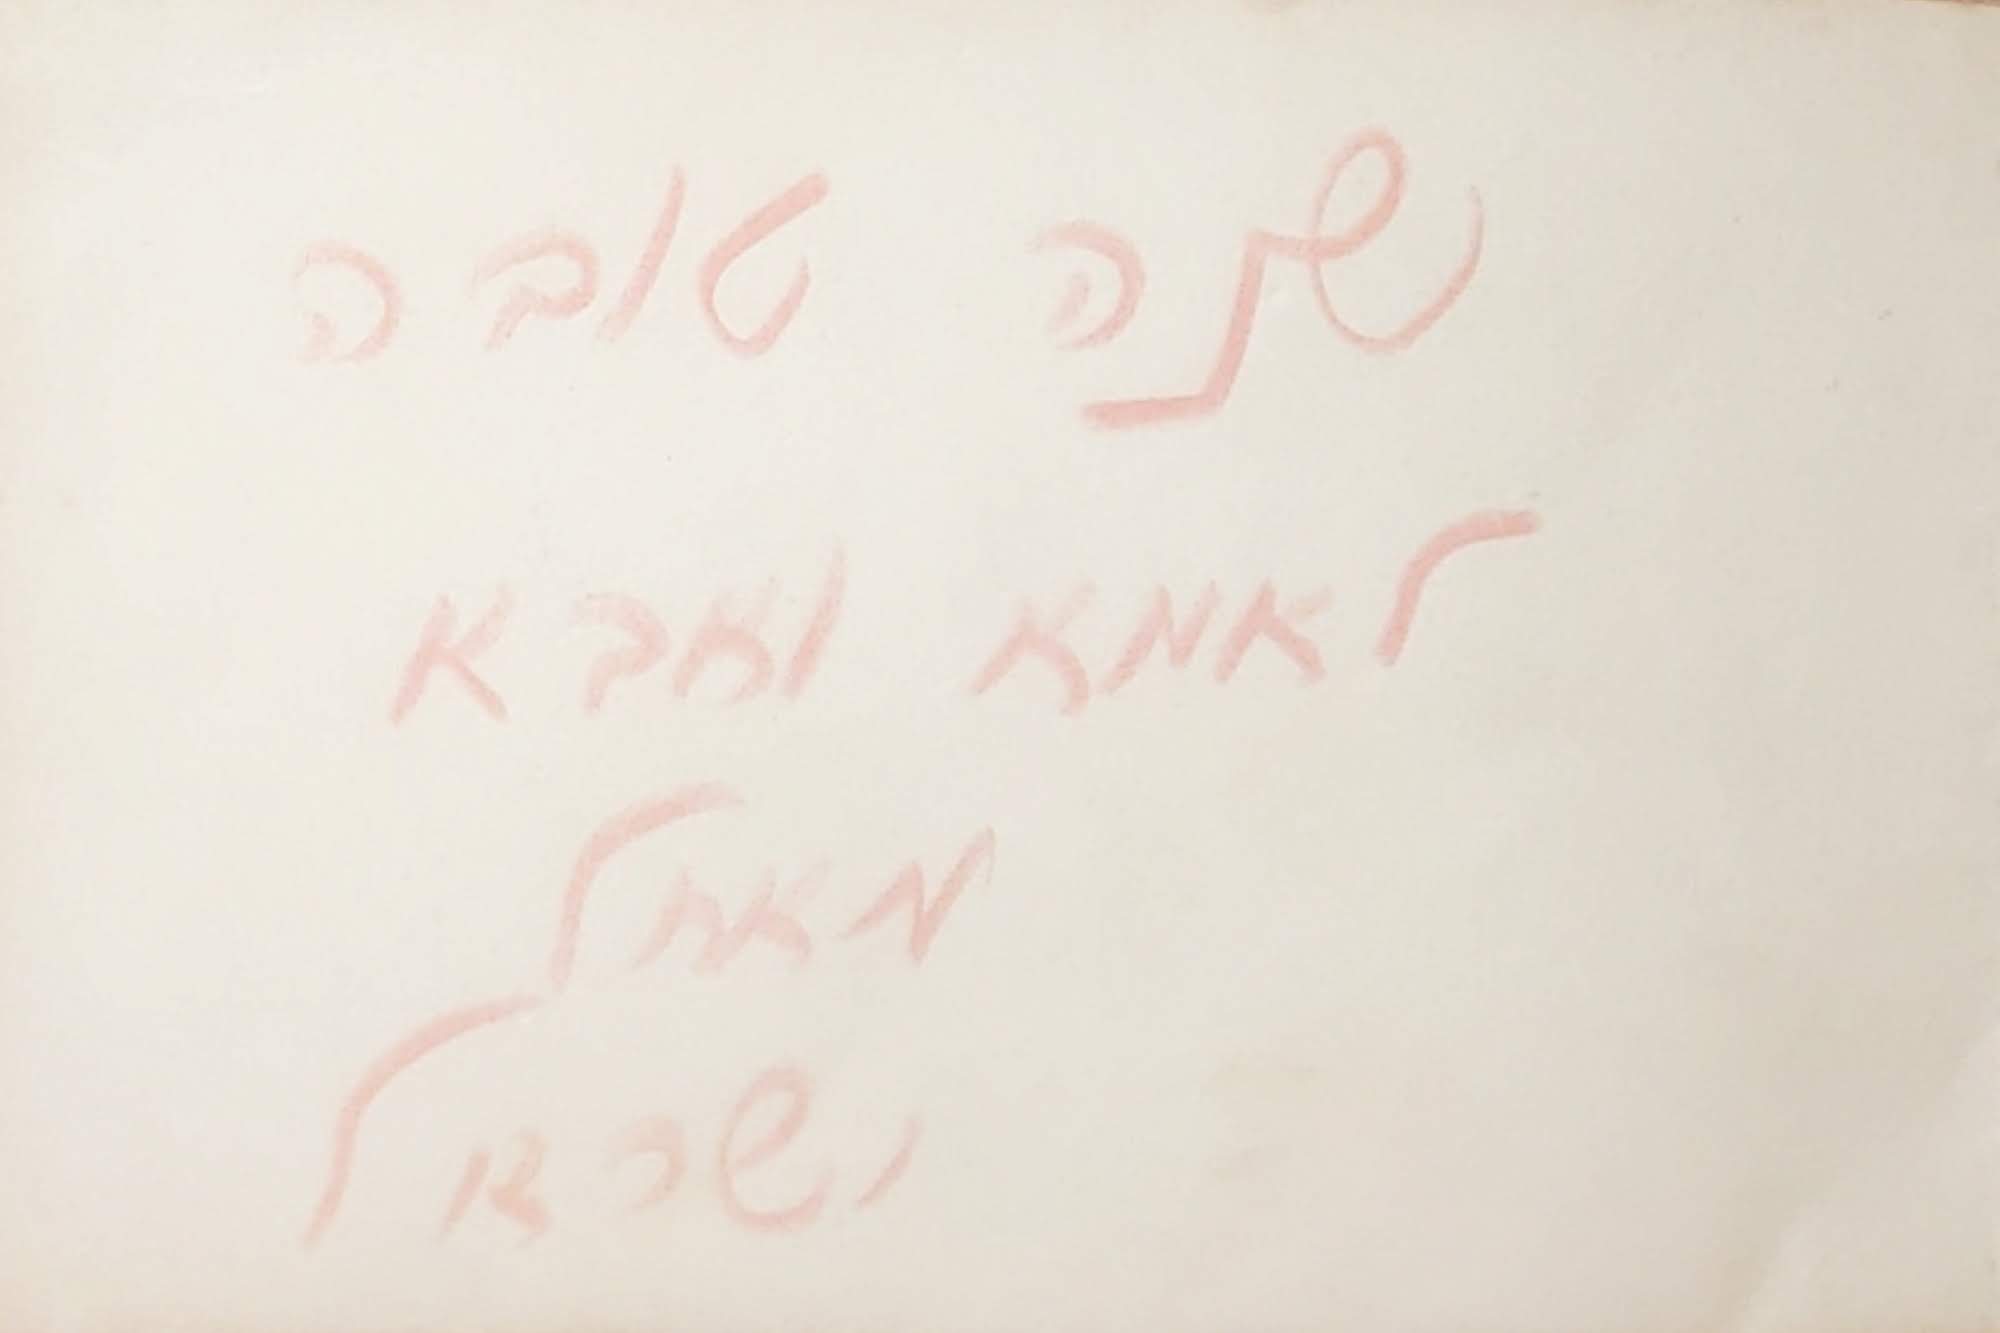 שנה טובה
לאמא ואבא
מאת
ישראל